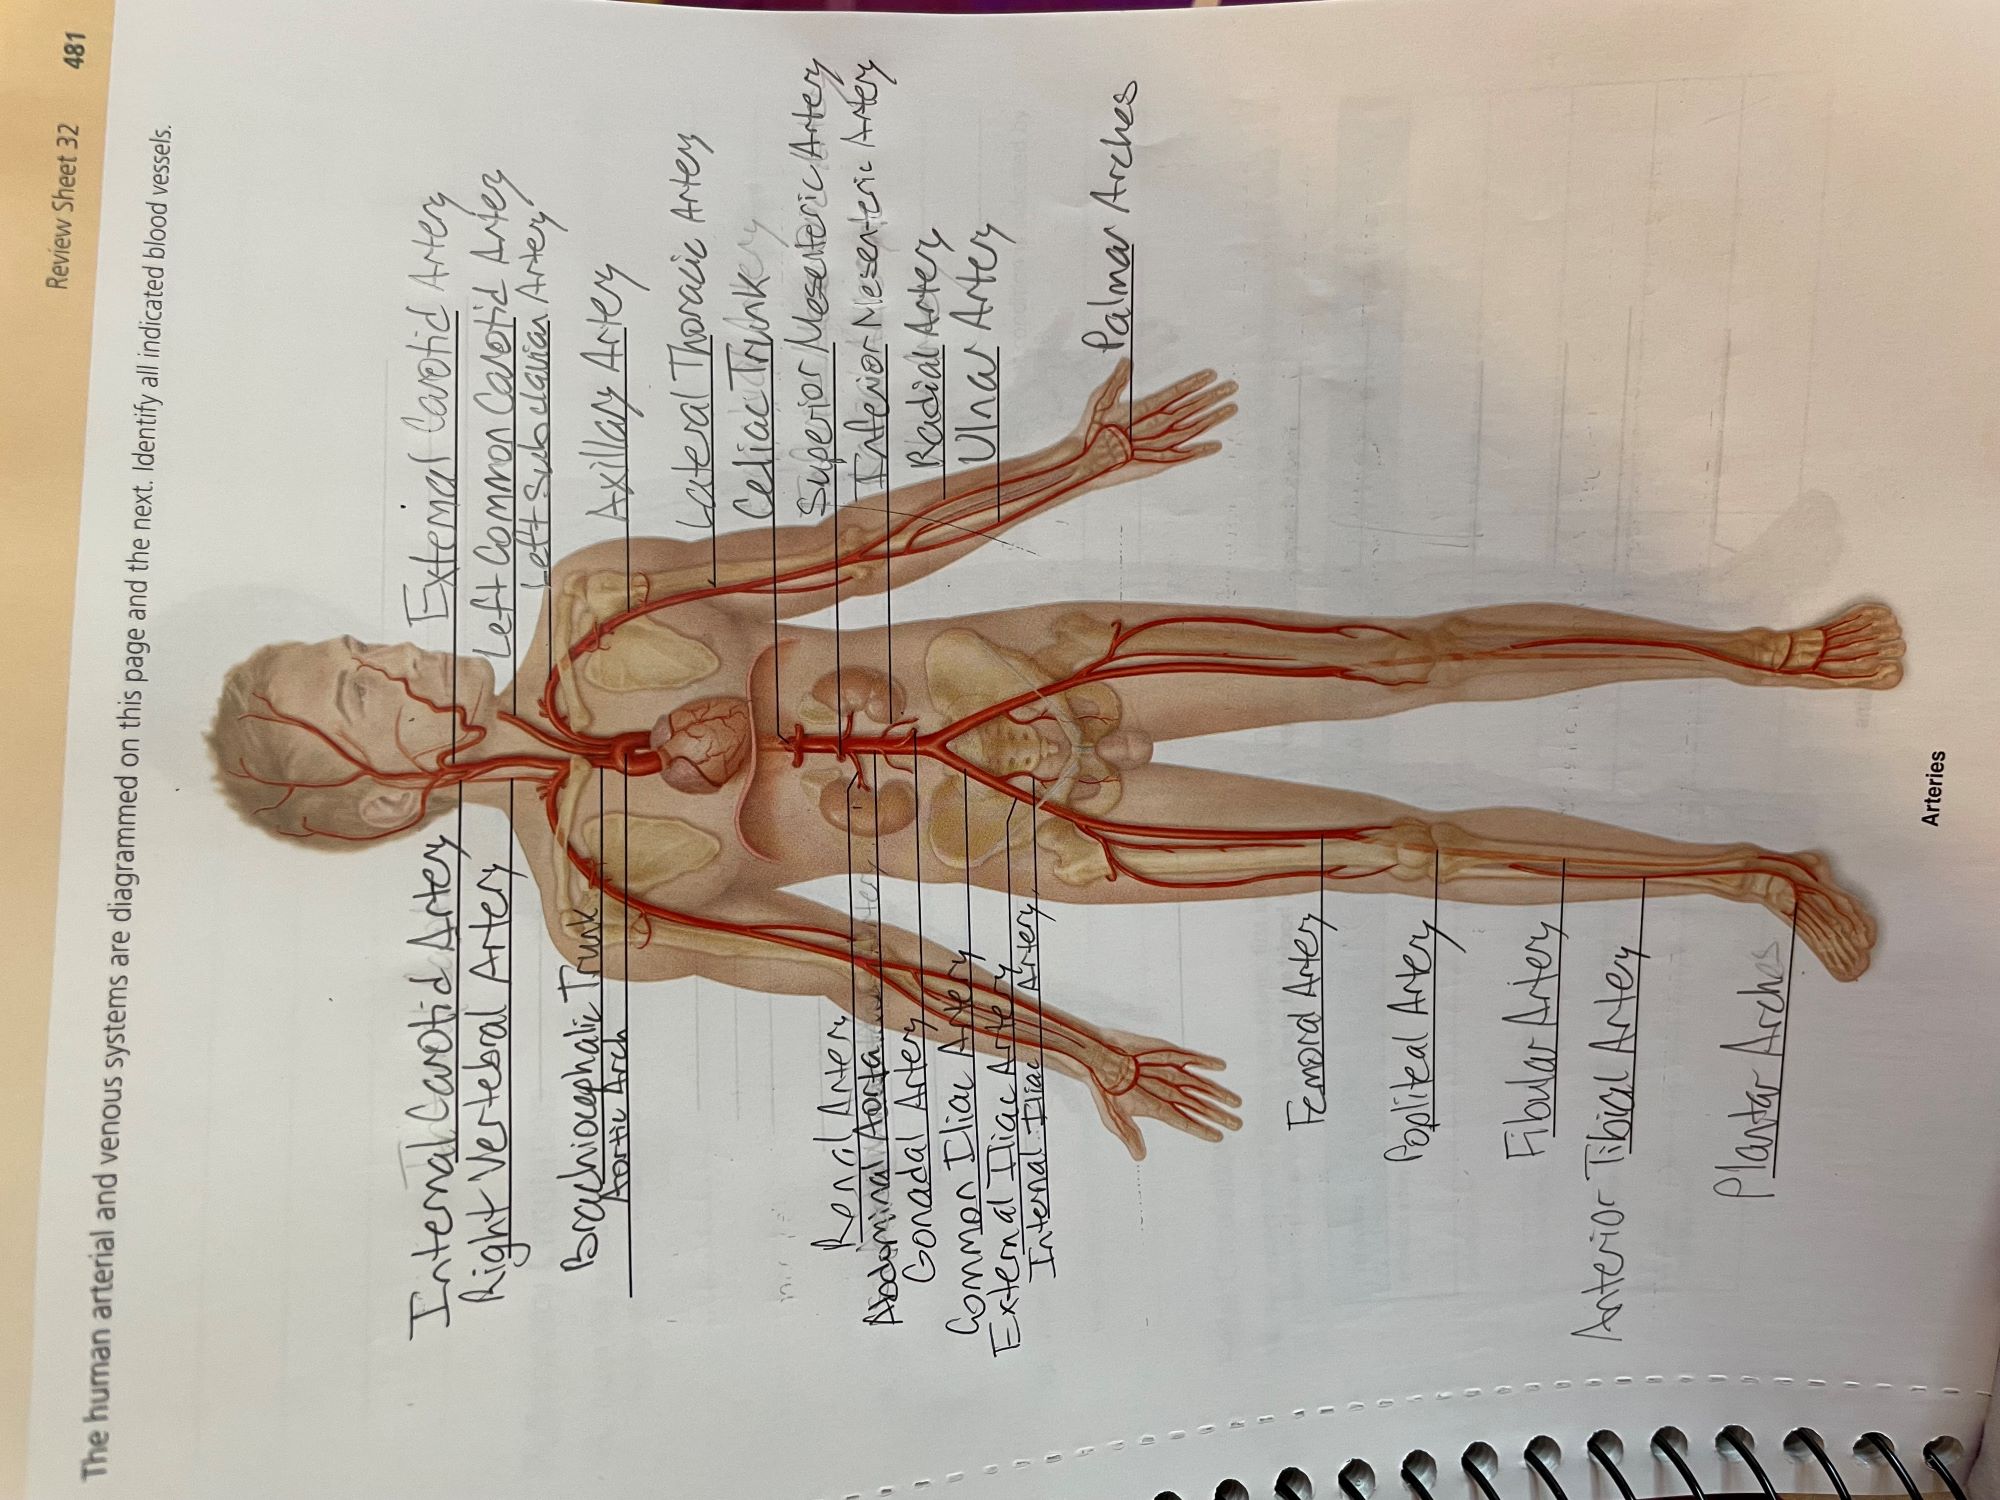 Review Sheet 32 481
The human arterial and venous systems are diagrammed on this page and the next. Identify all indicated blood vessels.
Internal Carotid Artery
Right Vertebral Artery
Brachiocephalic Trunk
Aortic Arch
Renal Artery
Abdominal Aorta
Gonadal Artery
Common Iliac Artery
External Iliac Artery
Internal Iliac Artery
Femoral Artery
Popliteal Artery
Fibular Artery
Anterior Tibial Artery
Plantar Arches
External Carotid Artery
Left Common Carotid Artery
Left Subclavian Artery
Axillary Artery
Lateral Thoracic Artery
Celiac Trunk
Superior Mesenteric Artery
Inferior Mesenteric Artery
Radial Artery
Ulnar Artery
Palmar Arches
Arteries